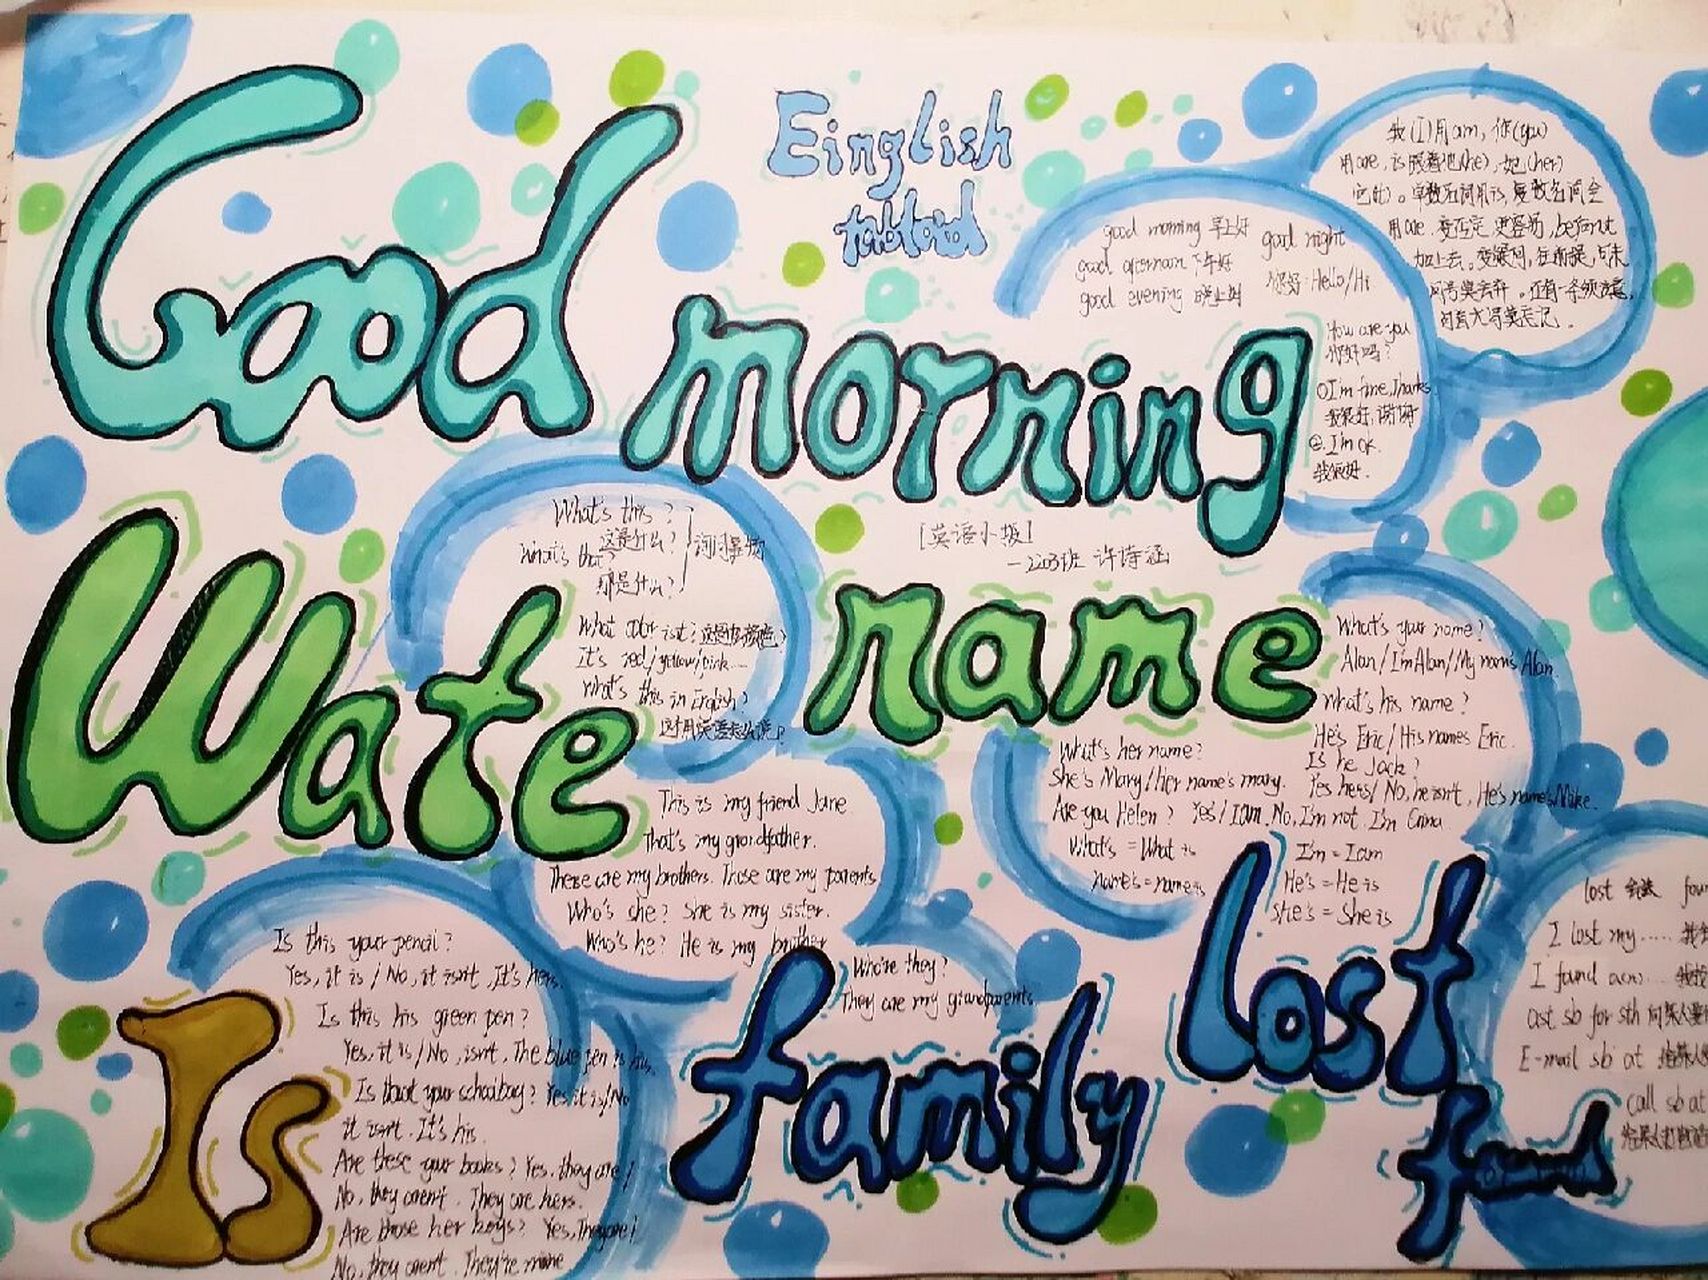 Einglish
tabloid
Good
morning
good morning 早上好
good afternoon 下午好
good evening 晚上好
good night
您好 Hello/Hi
How are you
你好吗?
①I'm fine, Thanks
我很好,谢谢
②.I'm ok.
我很好.
我(I)用am,你(you)
用are,is跟着他(he),她(her)
它(it)。单数名词用is,复数名词全
用are.变否定,更容易,be后not
加上去。变疑问,往前提,句末
问号莫丢弃。还有一条须注意,
句首大写莫忘记.
[英语小报]
—2203班 许诗涵
Wate
What's this?
这是什么?
What's that?
那是什么?
询问事物
What color is it?这是什么颜色?
It's red/yellow/pink......
What's this in English?
这个用英语怎么说?
name
What's your name?
Alan/I'm Alan/My name's Alan.
What's his name?
He's Eric/His names Eric.
Is he Jack?
Yes he is/No, he isn't, He's name's Mike.
What's her name?
She's Mary/her name's mary.
Are you Helen? Yes/I am. No, I'm not. I'm
What's = What is
name's = name is
I'm = I am
He's = He is
She's = She is
This is my friend Jane
That's my grandfather.
These are my brothers. Those are my parents
Who's she? She is my sister.
Who's he? He is my brother
Who're they?
They are my grandparents.
family
Is
Is this your pencil?
Yes, it is / No, it isn't, It's hers.
Is this his green pen?
Yes, it is/No, isnt, The blue pen is his.
Is that your schoolbag? Yes it is/No
it isn't. It's his.
Are these your books? Yes, they are/
No, they aren't. They are hers.
Are those her keys? Yes, They are/
No, they arent. They're mine
lost
found
lost 丢失 foun
I lost my......
I found a(n)...
ast sb for sth 向某人要
E-mail sb at
call sb at